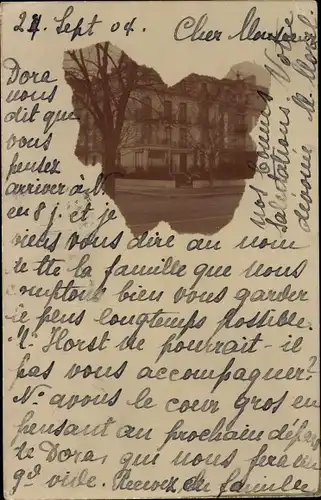 24 Sept 04.
Cher Monsieur
Dora
nous
dit que
vous
pensez
arriver à
en 8 j. et je
viens vous dire au nom
de tte la famille que nous
comptons bien vous garder
le plus longtemps possible.
M. Horst ne pourrait-il
pas vous accompagner?
N. avons le cœur gros en
pensant au prochain départ
de Dora, qui nous fera un
gd vide. Recevez, cher
famille
nos bonnes
salutations. Votre
dévouée M.